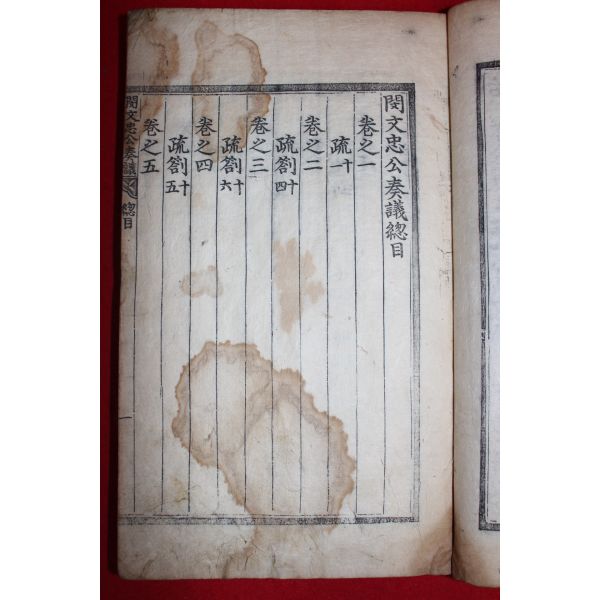 閔文忠公奏議總目
卷之一
疏十一
卷之二
疏劄十四
卷之三
疏劄十六
卷之四
疏劄十五
卷之五
閔文忠公奏議 總目